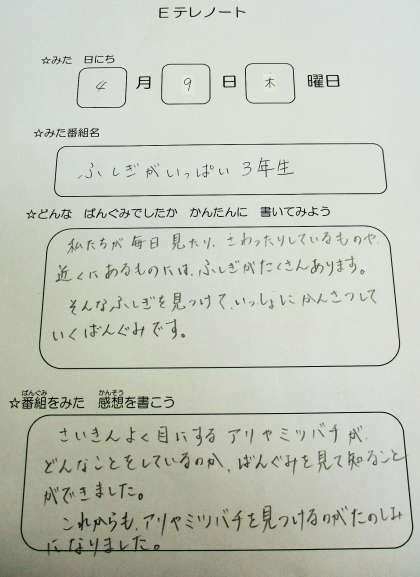 Eテレノート
☆みた 日にち
4 月 9 日 木 曜日
☆みた番組名
ふしぎがいっぱい 3年生
☆どんな ばんぐみでしたか かんたんに 書いてみよう
私たちが毎日見たり、さわったりしているものや、
近くにあるものには、ふしぎがたくさんあります。
そんなふしぎを見つけて、いっしょにかんさつして
いくばんぐみです。
ばんぐみ かんそう
☆番組をみた 感想を書こう
さいきんよく目にするアリやミツバチが、
どんなことをしているのか、ばんぐみを見て知ること
ができました。
これからも、アリやミツバチを見つけるのがたのしみ
になりました。